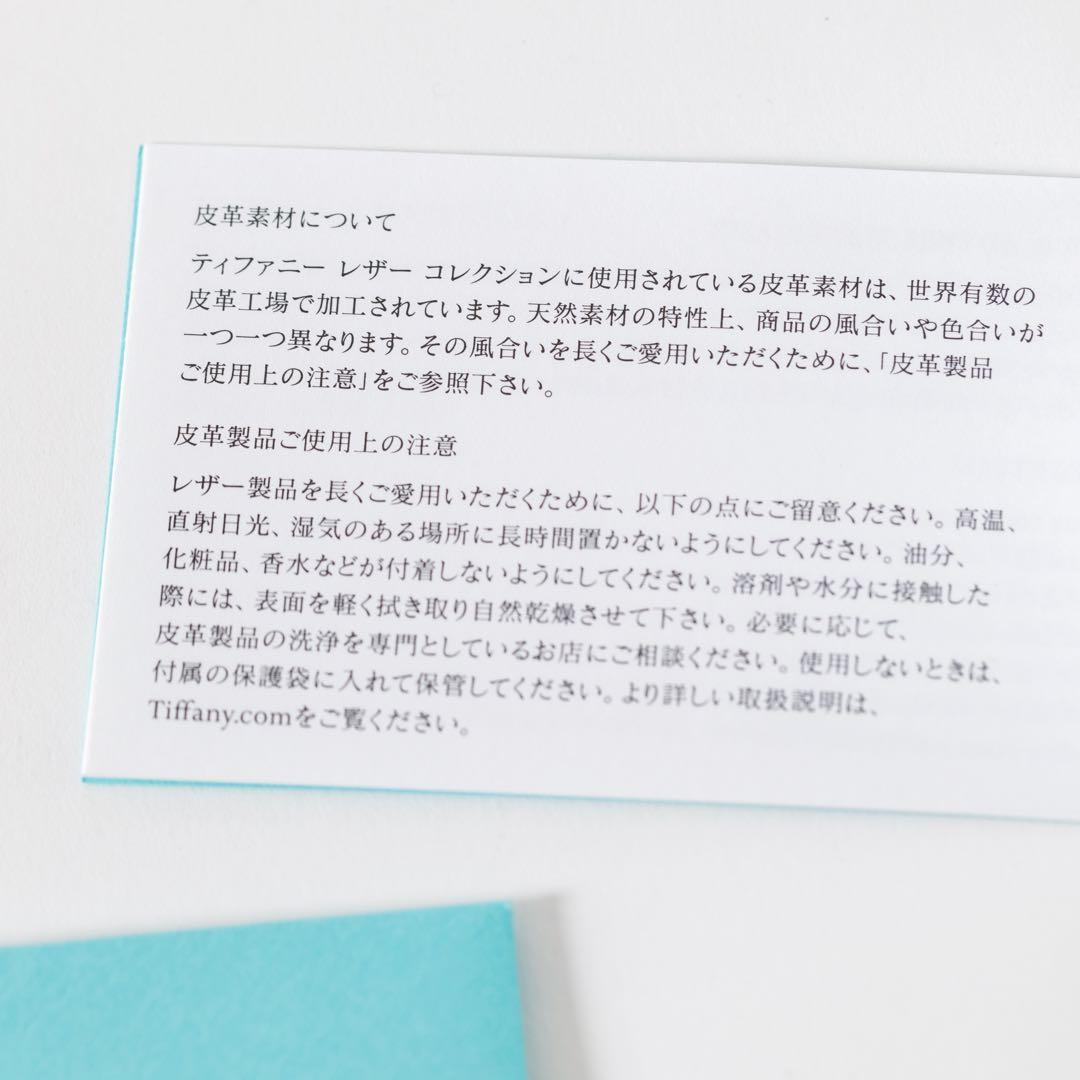 皮革素材について
ティファニー レザー コレクションに使用されている皮革素材は、世界有数の
皮革工場で加工されています。天然素材の特性上、商品の風合いや色合いが
一つ一つ異なります。その風合いを長くご愛用いただくために、「皮革製品
ご使用上の注意」をご参照下さい。
皮革製品ご使用上の注意
レザー製品を長くご愛用いただくために、以下の点にご留意ください。高温、
直射日光、湿気のある場所に長時間置かないようにしてください。油分、
化粧品、香水などが付着しないようにしてください。溶剤や水分に接触した
際には、表面を軽く拭き取り自然乾燥させて下さい。必要に応じて、
皮革製品の洗浄を専門としているお店にご相談ください。使用しないときは、
付属の保護袋に入れて保管してください。より詳しい取扱説明は、
Tiffany.comをご覧ください。